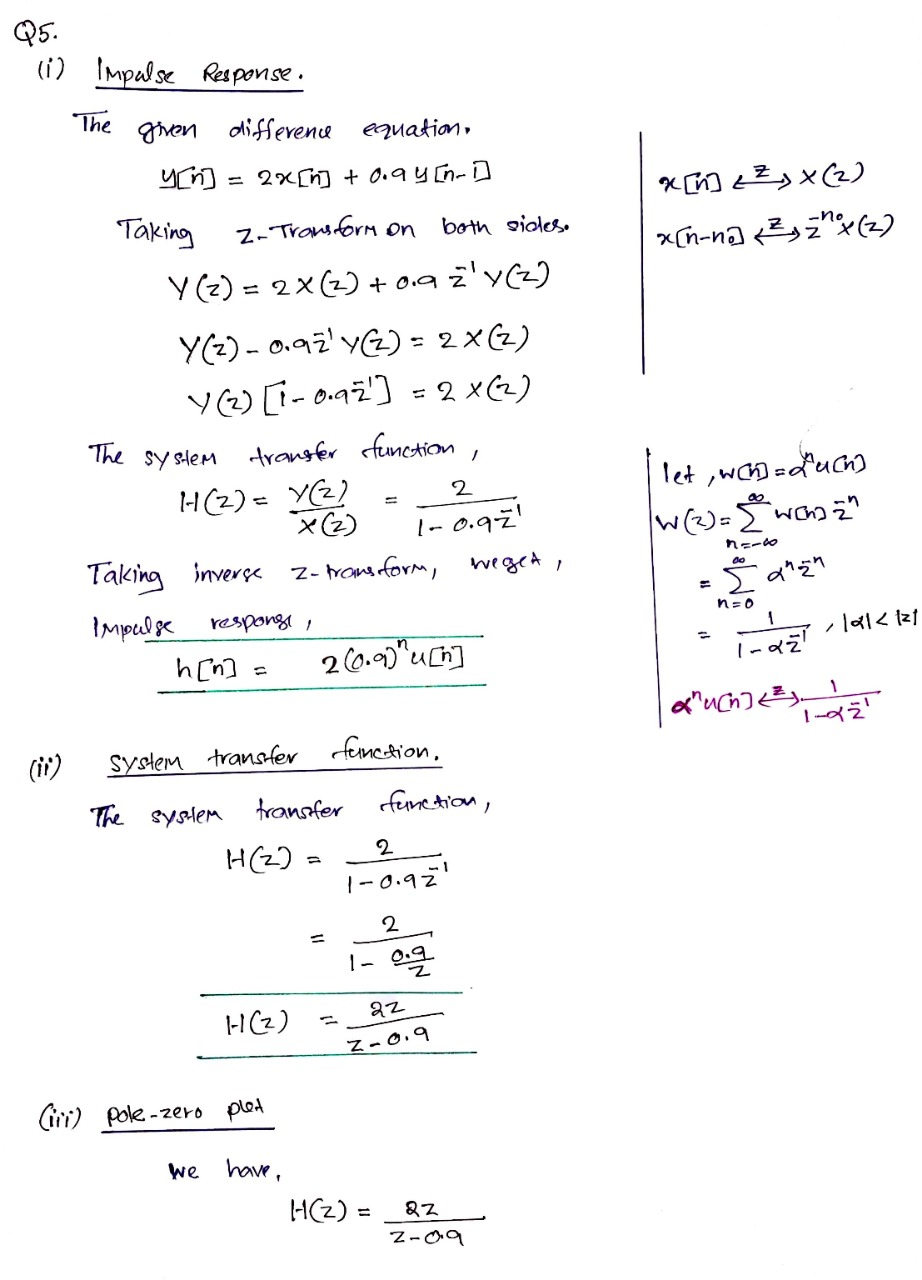 Q5.
(i) Impulse Response.
The given difference equation.
y[n] = 2x[n] + 0.9 y[n-1]
Taking z-Transform on both sides.
Y(z) = 2X(z) + 0.9 z⁻¹ Y(z)
Y(z) - 0.9z⁻¹ Y(z) = 2X(z)
Y(z) [1 - 0.9z⁻¹] = 2 X(z)
x[n] ⟷ᶻ X(z)
x[n-n₀] ⟷ᶻ z^{-n₀} X(z)
The system transfer function,
H(z) = Y(z)/X(z) = 2/(1 - 0.9z⁻¹)
Taking inverse z-transform, we get,
Impulse response,
h[n] = 2(0.9)ⁿ u[n]
let, w[n] = αⁿ u[n]
W(z) = ∑_{n=-∞}^{∞} w[n] z⁻ⁿ
= ∑_{n=0}^{∞} αⁿ z⁻ⁿ
= 1/(1 - αz⁻¹), |α| < |z|
αⁿ u[n] ⟷ᶻ 1/(1 - αz⁻¹)
(ii) system transfer function.
The system transfer function,
H(z) = 2/(1 - 0.9z⁻¹)
= 2/(1 - 0.9/z)
H(z) = 2z/(z - 0.9)
(iii) pole-zero plot
we have,
H(z) = 2z/(z - 0.9)